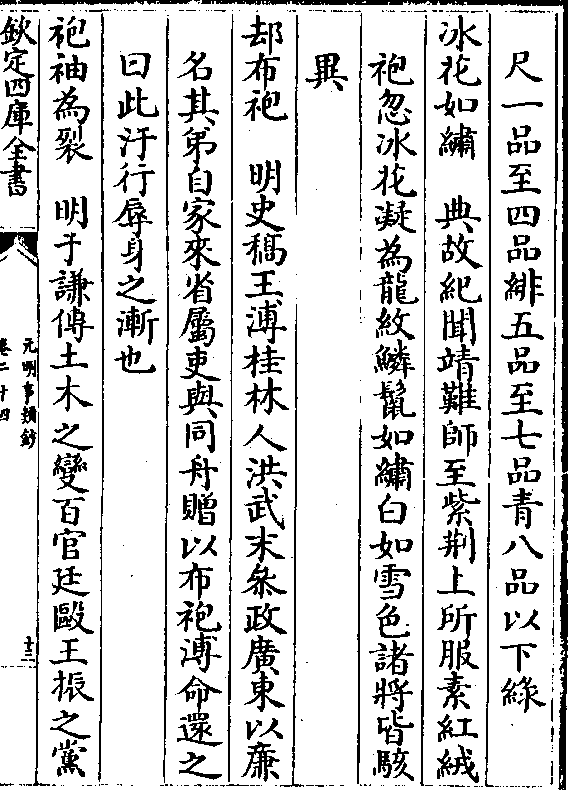 尺一品至四品緋五品至七品青八品以下綠
冰花如繡　典故紀聞靖難師至紫荆上所服素紅絨
袍忽冰花凝為龍紋鱗鬣如繡白如雪色諸將皆駭
異
却布袍　明史稿王溥桂林人洪武末叅政廣東以廉
名其弟自家來省屬吏與同舟贈以布袍溥命還之
曰此汙行辱身之漸也
袍袖為裂　明于謙傳土木之變百官廷毆王振之黨
欽定四庫全書
元明事類鈔
卷二十四
十三